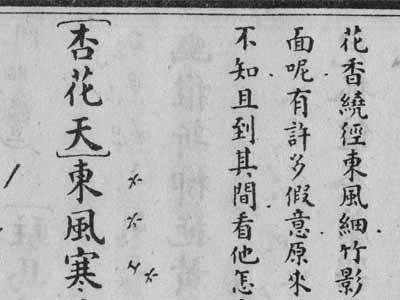 花香繞徑東風細竹影
面呢有許多假意原來
不知且到其間看他怎
〔杏花天〕東風寒